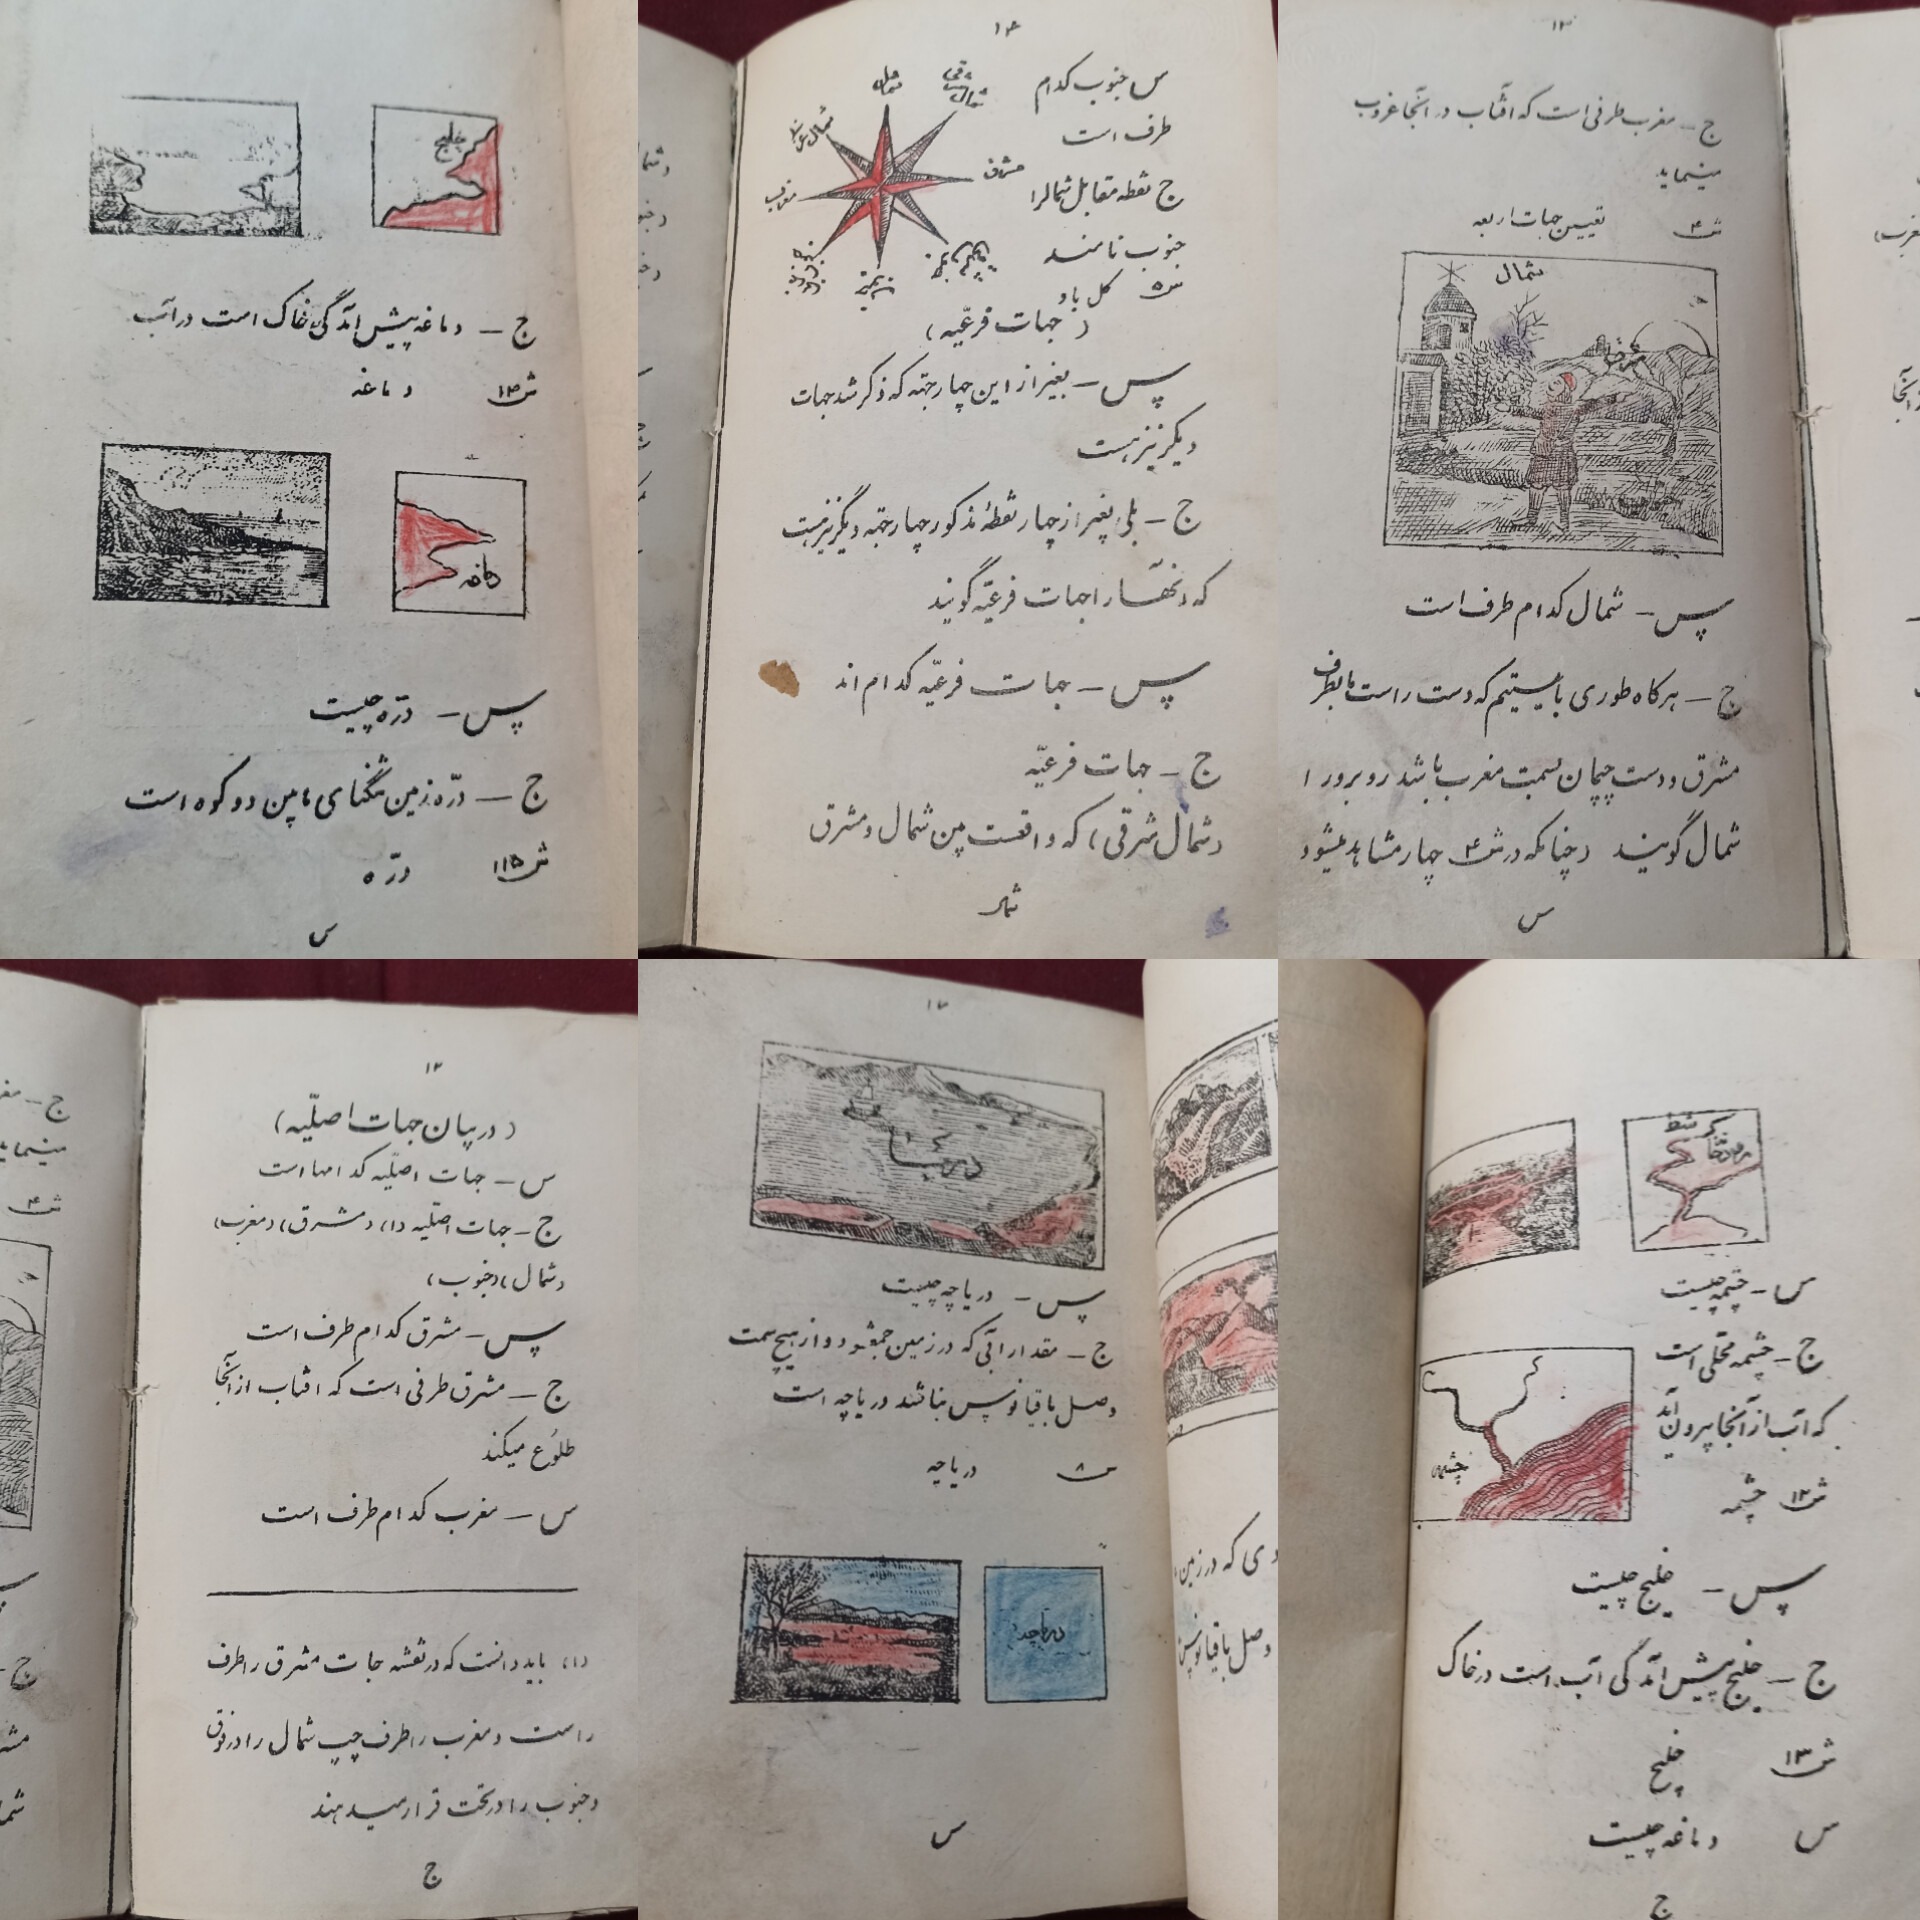 خلیج
ج – دماغه پیش آمدگی خاک است در آب
ش ۱۴ دماغه
دماغه
پس – درّه چیست
ج – درّه زمین تنگنای مابین دو کوه است
ش ۱۵ درّه
س
۱۴
س جنوب کدام
طرف است
ج نقطه مقابل شمالرا
جنوب نامند
ش ۵ گل باد
شمال
شمال شرقی
مشرق
جنوب
مغرب
شمال غربی
(جهات فرعیّه)
پس – بغیر از این چهار جهته که ذکر شد جهات
دیگر نیز هست
ج – بلی بغیر از چهار نقطهٔ مذکور چهار جهته دیگر نیز هست
که آنها را جهات فرعیّه گویند
پس – جهات فرعیّه کدام اند
ج – جهات فرعیّه
(شمال شرقی) که واقعست بین شمال و مشرق
۱۳
ج – مغرب طرفی است که آفتاب در آنجا غروب
مینماید
ش ۴ تعیین جهات اربعه
شمال
مشرق
پس – شمال کدام طرف است
ج – هرگاه طوری بایستیم که دست راست ما بطرف
مشرق و دست چپمان بسمت مغرب باشد روبرو را
شمال گویند (چنانکه در ش ۴ چهار مشاهد میشود)
س
۱۲
(در بیان جهات اصلّیه)
س – جهات اصلّیه کدامها است
ج – جهات اصلّیه (۱) (مشرق) (مغرب)
(شمال) (جنوب)
پس – مشرق کدام طرف است
ج – مشرق طرفی است که آفتاب از آنجا
طلوُع میکند
س – مغرب کدام طرف است
(۱) باید دانست که در نقشه جات مشرق را طرف
راست و مغرب را طرف چپ شمال را در فوق
و جنوب را در تحت قرار میدهند
ج
۱۷
دریا
پس – دریاچه چیست
ج – مقدار آبی که در زمین جمع شود و از هیچ سمت
وصل باقیانوس نباشد دریاچه است
ش ۸ دریاچه
دریاچه
س
شط
رودخانه
س – چشمه چیست
ج – چشمه محلی است
که آب از آنجا بیرون آید
ش ۱۲ چشمه
چشمه
پس – خلیج چیست
ج – خلیج پیش آمدگی آب است در خاک
ش ۱۳ خلیج
س دماغه چیست
ج